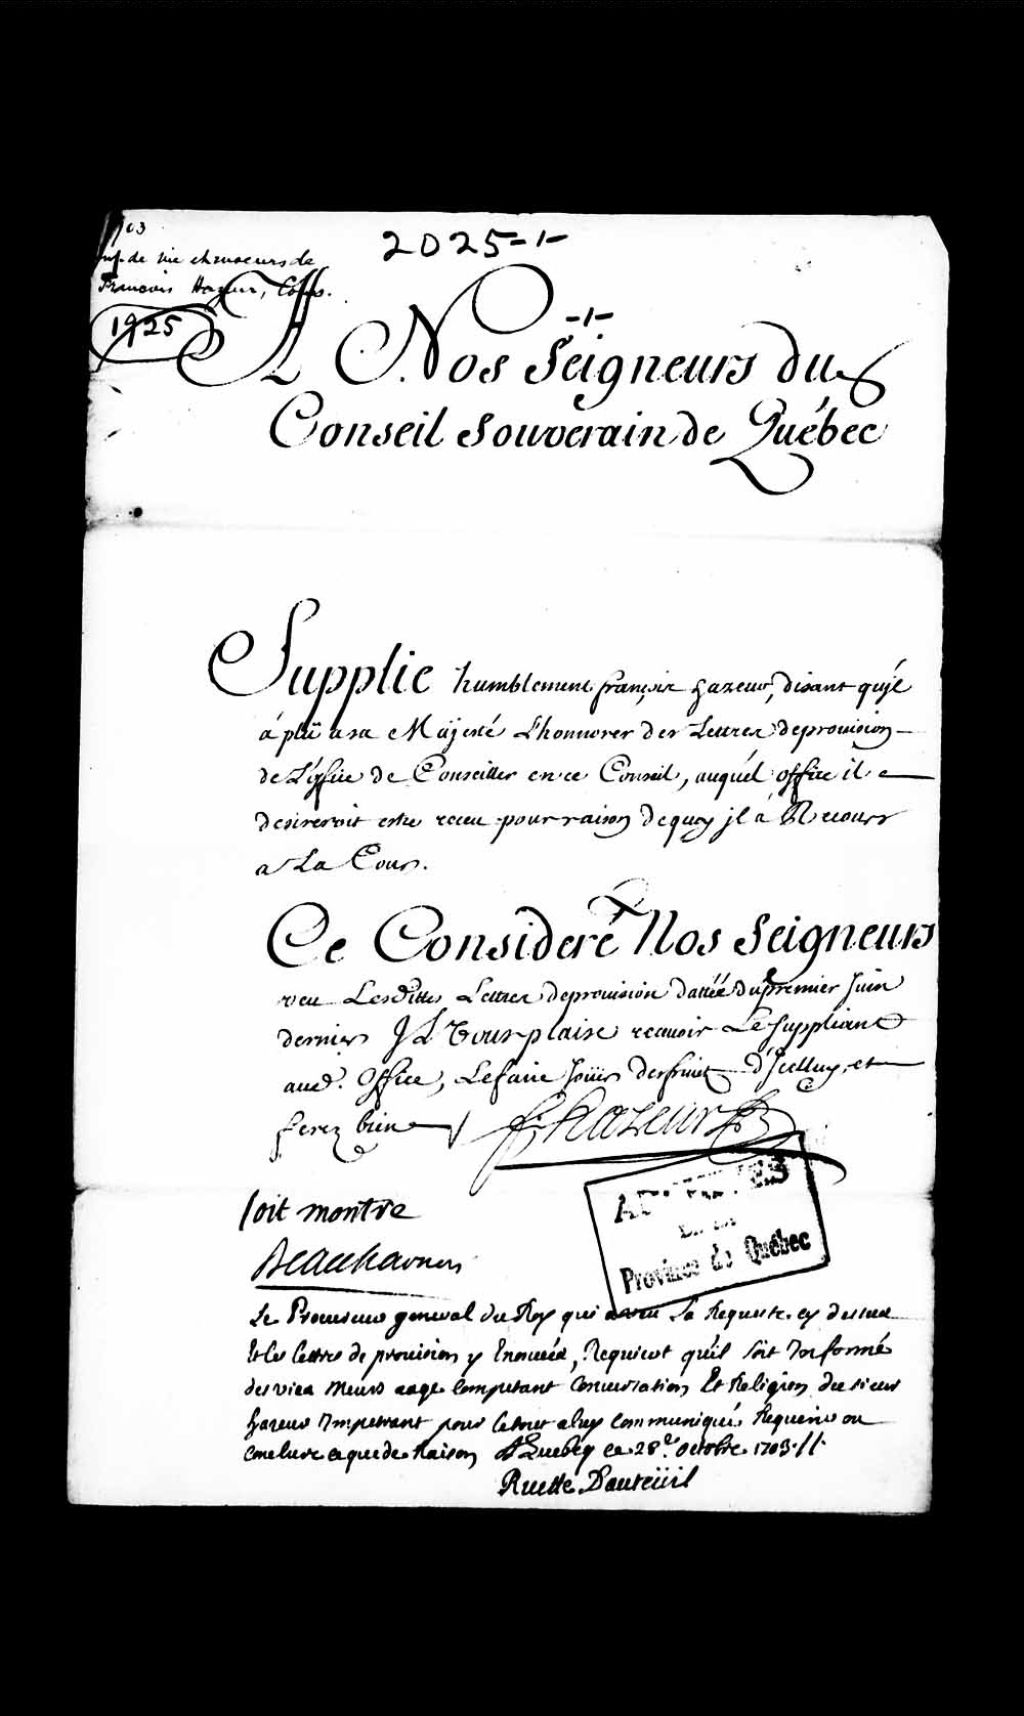 1703
inf. de vie et moeurs de
François Hazeur, Cons.
1925
2025-1-
-1-
A Nos Seigneurs du
Conseil Souverain de Québec
Supplie humblement françois hazeur, disant qu'jl
á plû a sa Majesté L'honnorer des Lettres de prouision
de L'office de Conseiller en ce Conseil, auquél office il
desireroit estre receu pour raison de quoy jl á Recours
a La Cour.
Ce Consideré Nos Seigneurs
veu Lesdittes Lettres de prouision dattéé du premier Juin
dernier Jl Vous plaise receuoir Le suppliant
aud. Office, Le faire Joüir des fruits d'Jcelluy, et
ferez bien
f. hazeur
Soit montré
Beauharnois
ARCHIVES
DE LA
Province de Québec
Le Procureur general du Roy qui a veu la Requeste cy dessus
Et les lettres de prouision y Enoncéés, Requiert qu'il soit Informé
des vies meurs aage competant Conuersation Et Religion du sieur
hazeur Impetrant pour le tout a luy communiqué Requerir ou
conclure ce que de Raison A Quebec ce 28e. octobre 1703.//.
Ruette Dauteüil